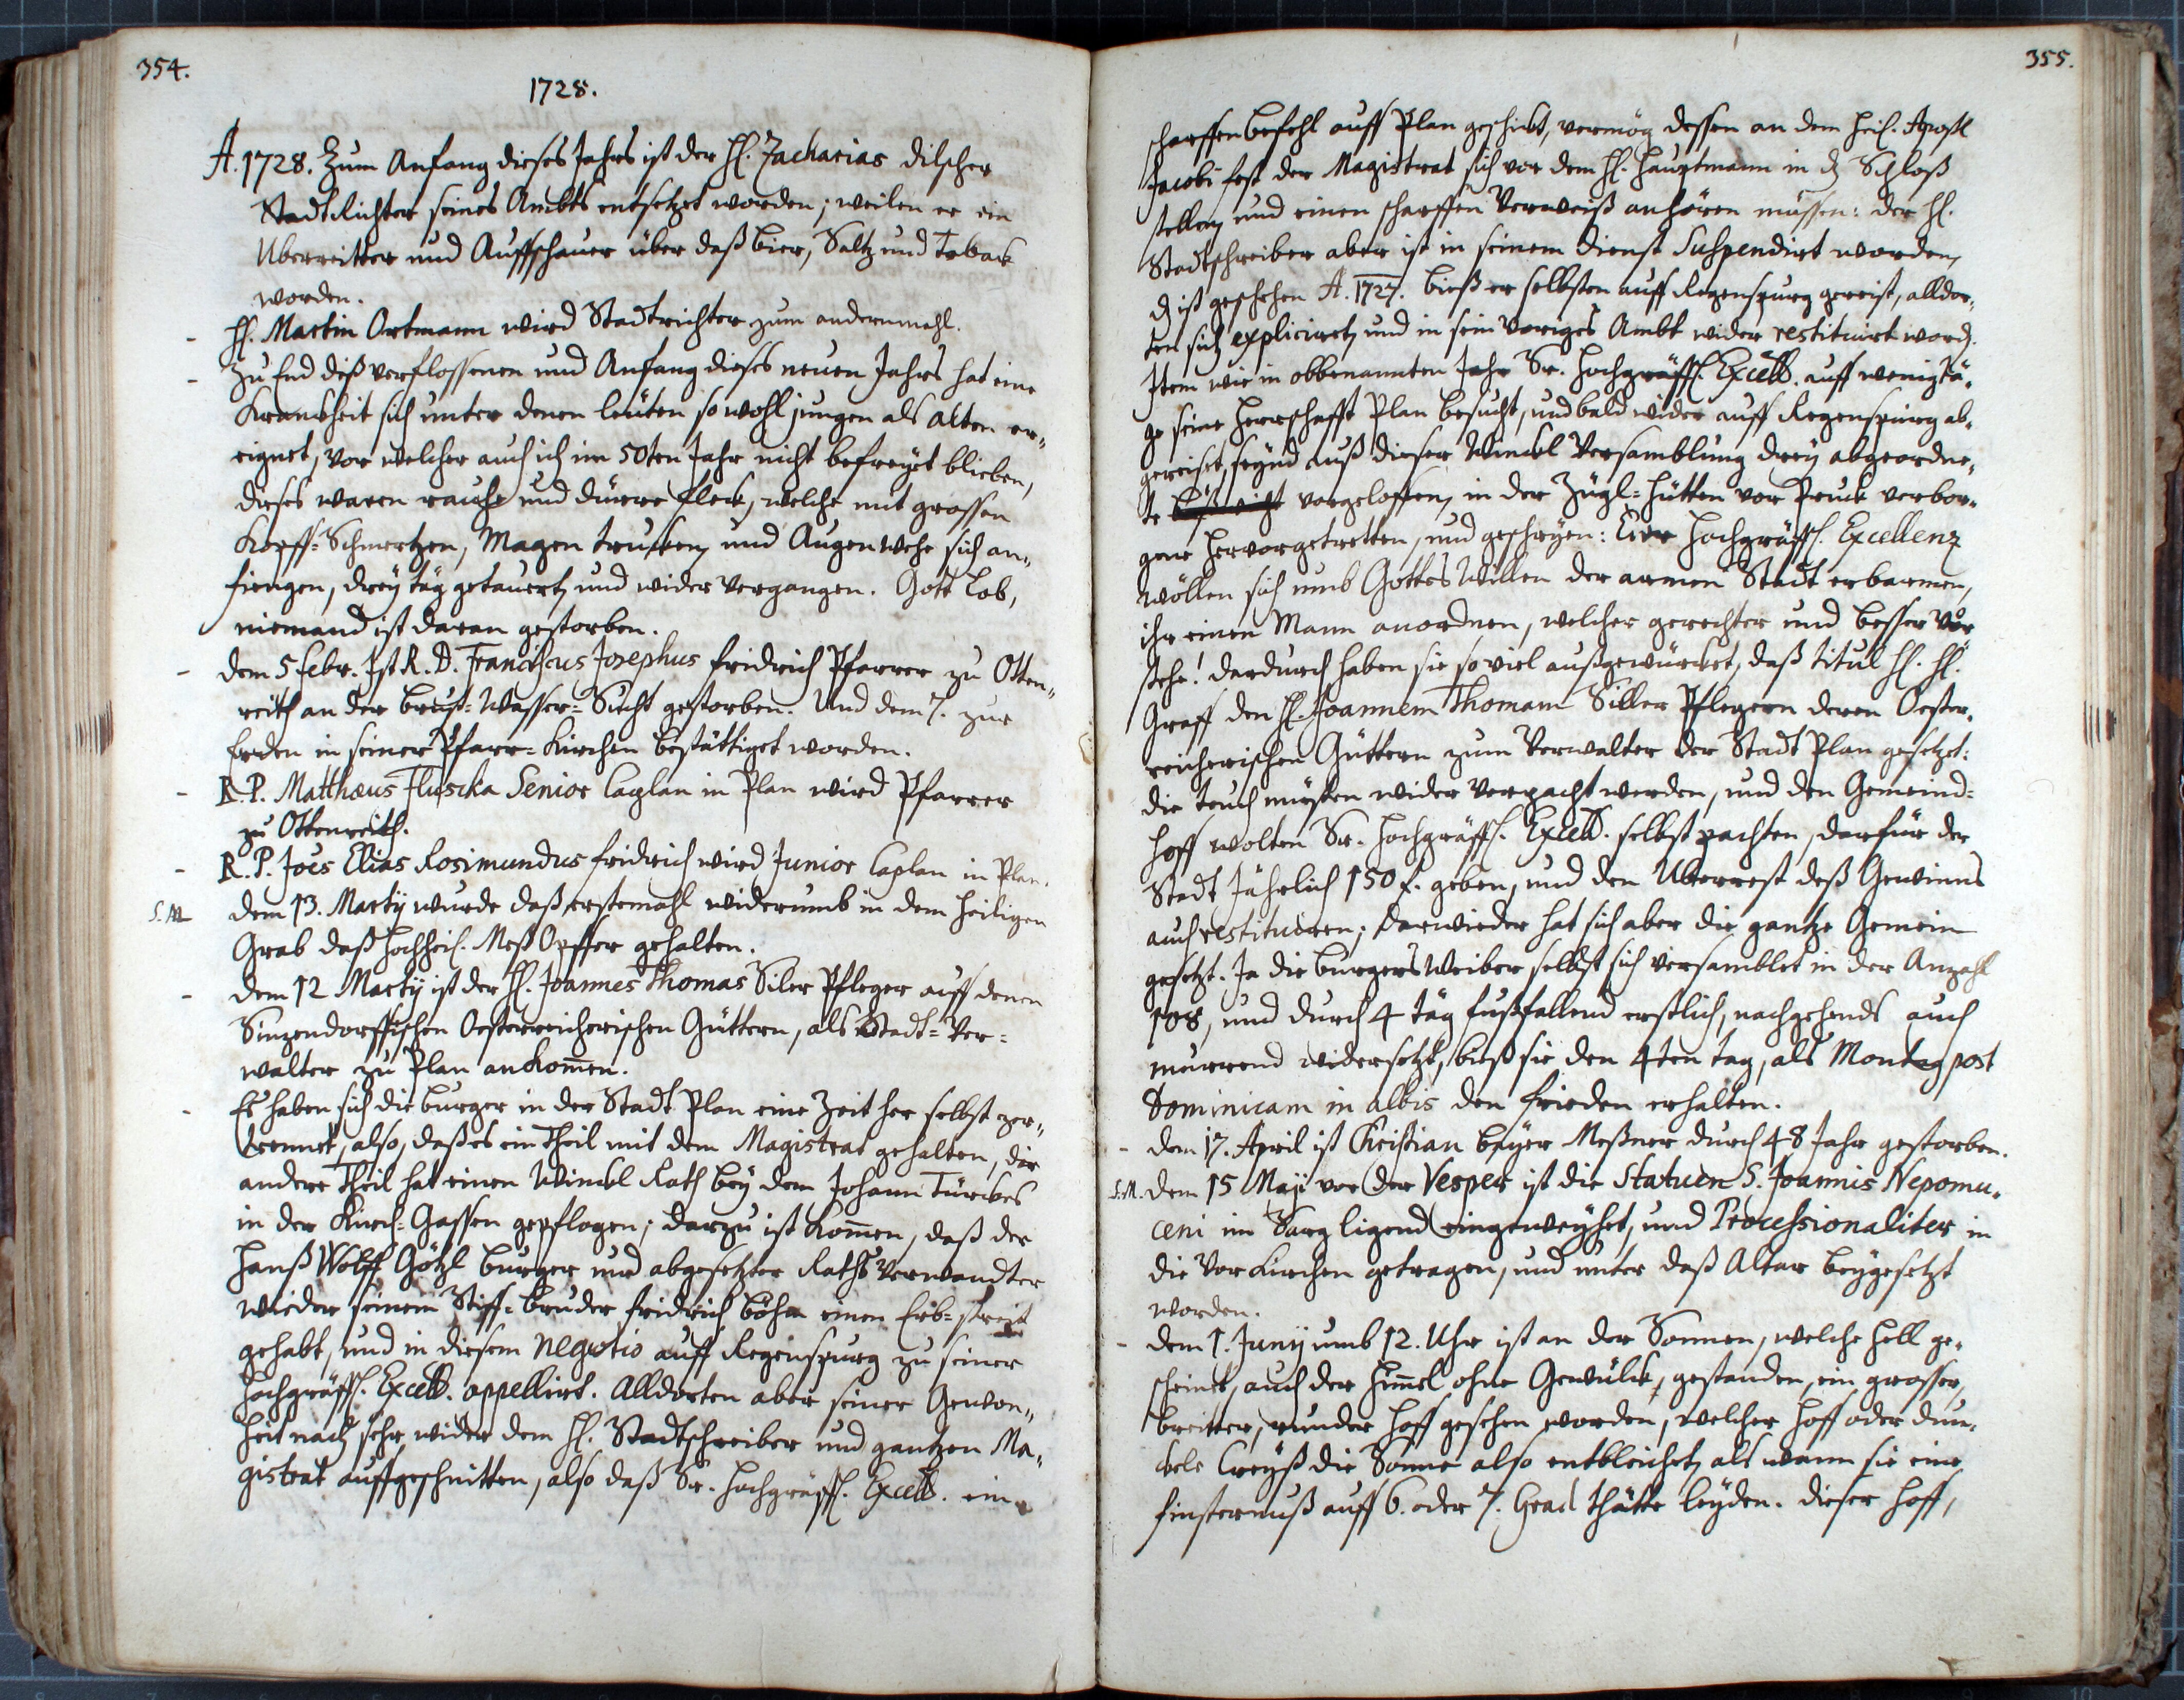 354.
1728.
A. 1728. Zum Anfang dieses Jahrs ist der H. Zacharias Dilscher
Stadt Richter seines Ambts entsetzet worden; weilen er ein
Uberreitter und Auffschauer über daß bier, Saltz und Taback
worden.
- H. Martin Ortmann wird Stadtrichter zum andernmahl.
- Zu End diß verflossenen und Anfang dieses neuen Jahrs hat eine
Kranckheit sich unter denen leüten so wohl jungen als alten er„
eignet, vor welcher auch ich im 50ten Jahr nicht befreyet blieben,
dieses waren rauche und dürre fleck, welche mit grossen
Kopff-Schmertzen, Magen trucken, und Augen wehe sich an„
fiengen, drey täg getauert, und wider vergangen. Gott Lob,
niemand ist daran gestorben.
- dem 5 febr. Ist R. D. Franciscus Josephus fridrich Pfarrer zu Otten„
reith an der brust-Wasser-Sucht gestorben. Und dem 7. zur
Erden in seiner Pfarr-Kirchen bestättiget worden.
- R. P. Matthæus Fluscka Senior Caplan in Plan wird Pfarrer
zu Ottenreith.
- R. P. Joes Elias Rosimundus fridrich wird Junior Caplan in Plan.
S. M. dem 13. Martÿ wurde daß erstemahl widerumb in dem heiligen
Grab daß hochheil. Meß Opffer gehalten.
- dem 12 Martÿ ist der H. Joannes Thomas Siler Pfleger auff denen
Sinzendorffischen Oesterreicherischen Güttern, als Stadt-Ver-
walter zu Plan ankom̄en.
- Es haben sich die burger in der Stadt Plan eine Zeit her selbst zer„
trennet, also, daß es ein theil mit dem Magistrat gehalten, der
andere theil hat einen Winckl Rath bey dem Johann Türckes
in der Kirch-Gassen gepflogen; darzu ist kom̄en, daß der
Hanß Wolff Götzl burger und abgesetzter Raths Verwandter
wieder seinem Stiff-bruder fridrich böhm einen Erb-streit
gehabt, und in diesem negotio auff Regenspurg zu seiner
Hochgräffl. Excell. appellirt. Alldorten aber seiner Gewon„
heit nach sehr wider dem H. Stadtschreiber und gantzen Ma„
gistrat auffgeschnitten, also daß Sr. Hochgräffl. Excell. ein
355.
scharffen befehl auff Plan geschickt, vermög dessen an dem heil. Apostl
Jacobi fest der Magistrat sich vor dem H. Hauptmann in d Schloß
stellen und einen scharffen Verweiß anhören müssen: der H.
Stadtschreiber aber ist in seinem dienst Suspendirt worden,
d ist geschehen A. 1727. bieß er selbsten auff Regenspurg gereist, alldor„
ten sich explicirt, und in sein voriges Ambt wider restituirt word.
Item wie in obbenannten Jahr Sr. Hochgräffl. Excell. auff wenig tä„
ge seine Herrschafft Plan besucht, und bald wider auff Regenspurg ab„
gereiset, seynd auß dieser Winckl Versamblung drey abgeordne„
te vorgeloffen, in der Zügl-hütten vor Pruck verbor„
gene hervorgetretten, und geschryen: Euer Hochgräffl. Excellenz
wöllen sich umb Gottes Willen der armen Stadt erbarmen,
ihr einen Mann anordnen, welcher gerechter und besser vor
stehe! dardurch haben sie so viel außgewürcket, daß titul H. H.
Graff den H. Joannem Thomam Siller Pflegern deren Oester„
reicherischen Güttern zum Verwalter der Stadt Plan gesetzet:
die teuch müsten wider verpacht werden, und den Gemeind-
hoff wolten Sr. Hochgräffl. Excell. selbst pachten, darfür der
Stadt Jährlich 150 f. geben, und den Uberrest deß Gewinns
auch restituiren; darwieder hat sich aber die gantze Gemein
gesetzt. Ja die burgers Weiber selbst sich versamblet in der Anzahl
108, und durch 4 täg fußfallend erstlich, nachgehends auch
murrend widersetzt, bieß sie den 4ten tag, als Montag post
Dominicam in albis den frieden erhalten.
- dem 17. April ist Christian bayer Meßner durch 48 Jahr gestorben.
S. M. dem 15 Maji vor der Vesper ist die Statuen S. Joannis Nepomu„
ceni im Sarg ligend eingeweyhet, und Processionaliter in
die Vor Kirchen getragen, und unter daß Altar beygesetzt
worden.
- dem 1. Junÿ umb 12. Uhr ist an der Sonnen, welche hell ge„
scheinet, auch der Him̄el ohne Gewülck, gestanden, ein grosser,
breitter, runder hoff gesehen worden, welcher hoff oder dun„
ckele Creyß die Sonne also entbleichet, als wann sie eine
finsternuß auff 6. oder 7. Grad thätte leyden. dieser hoff,